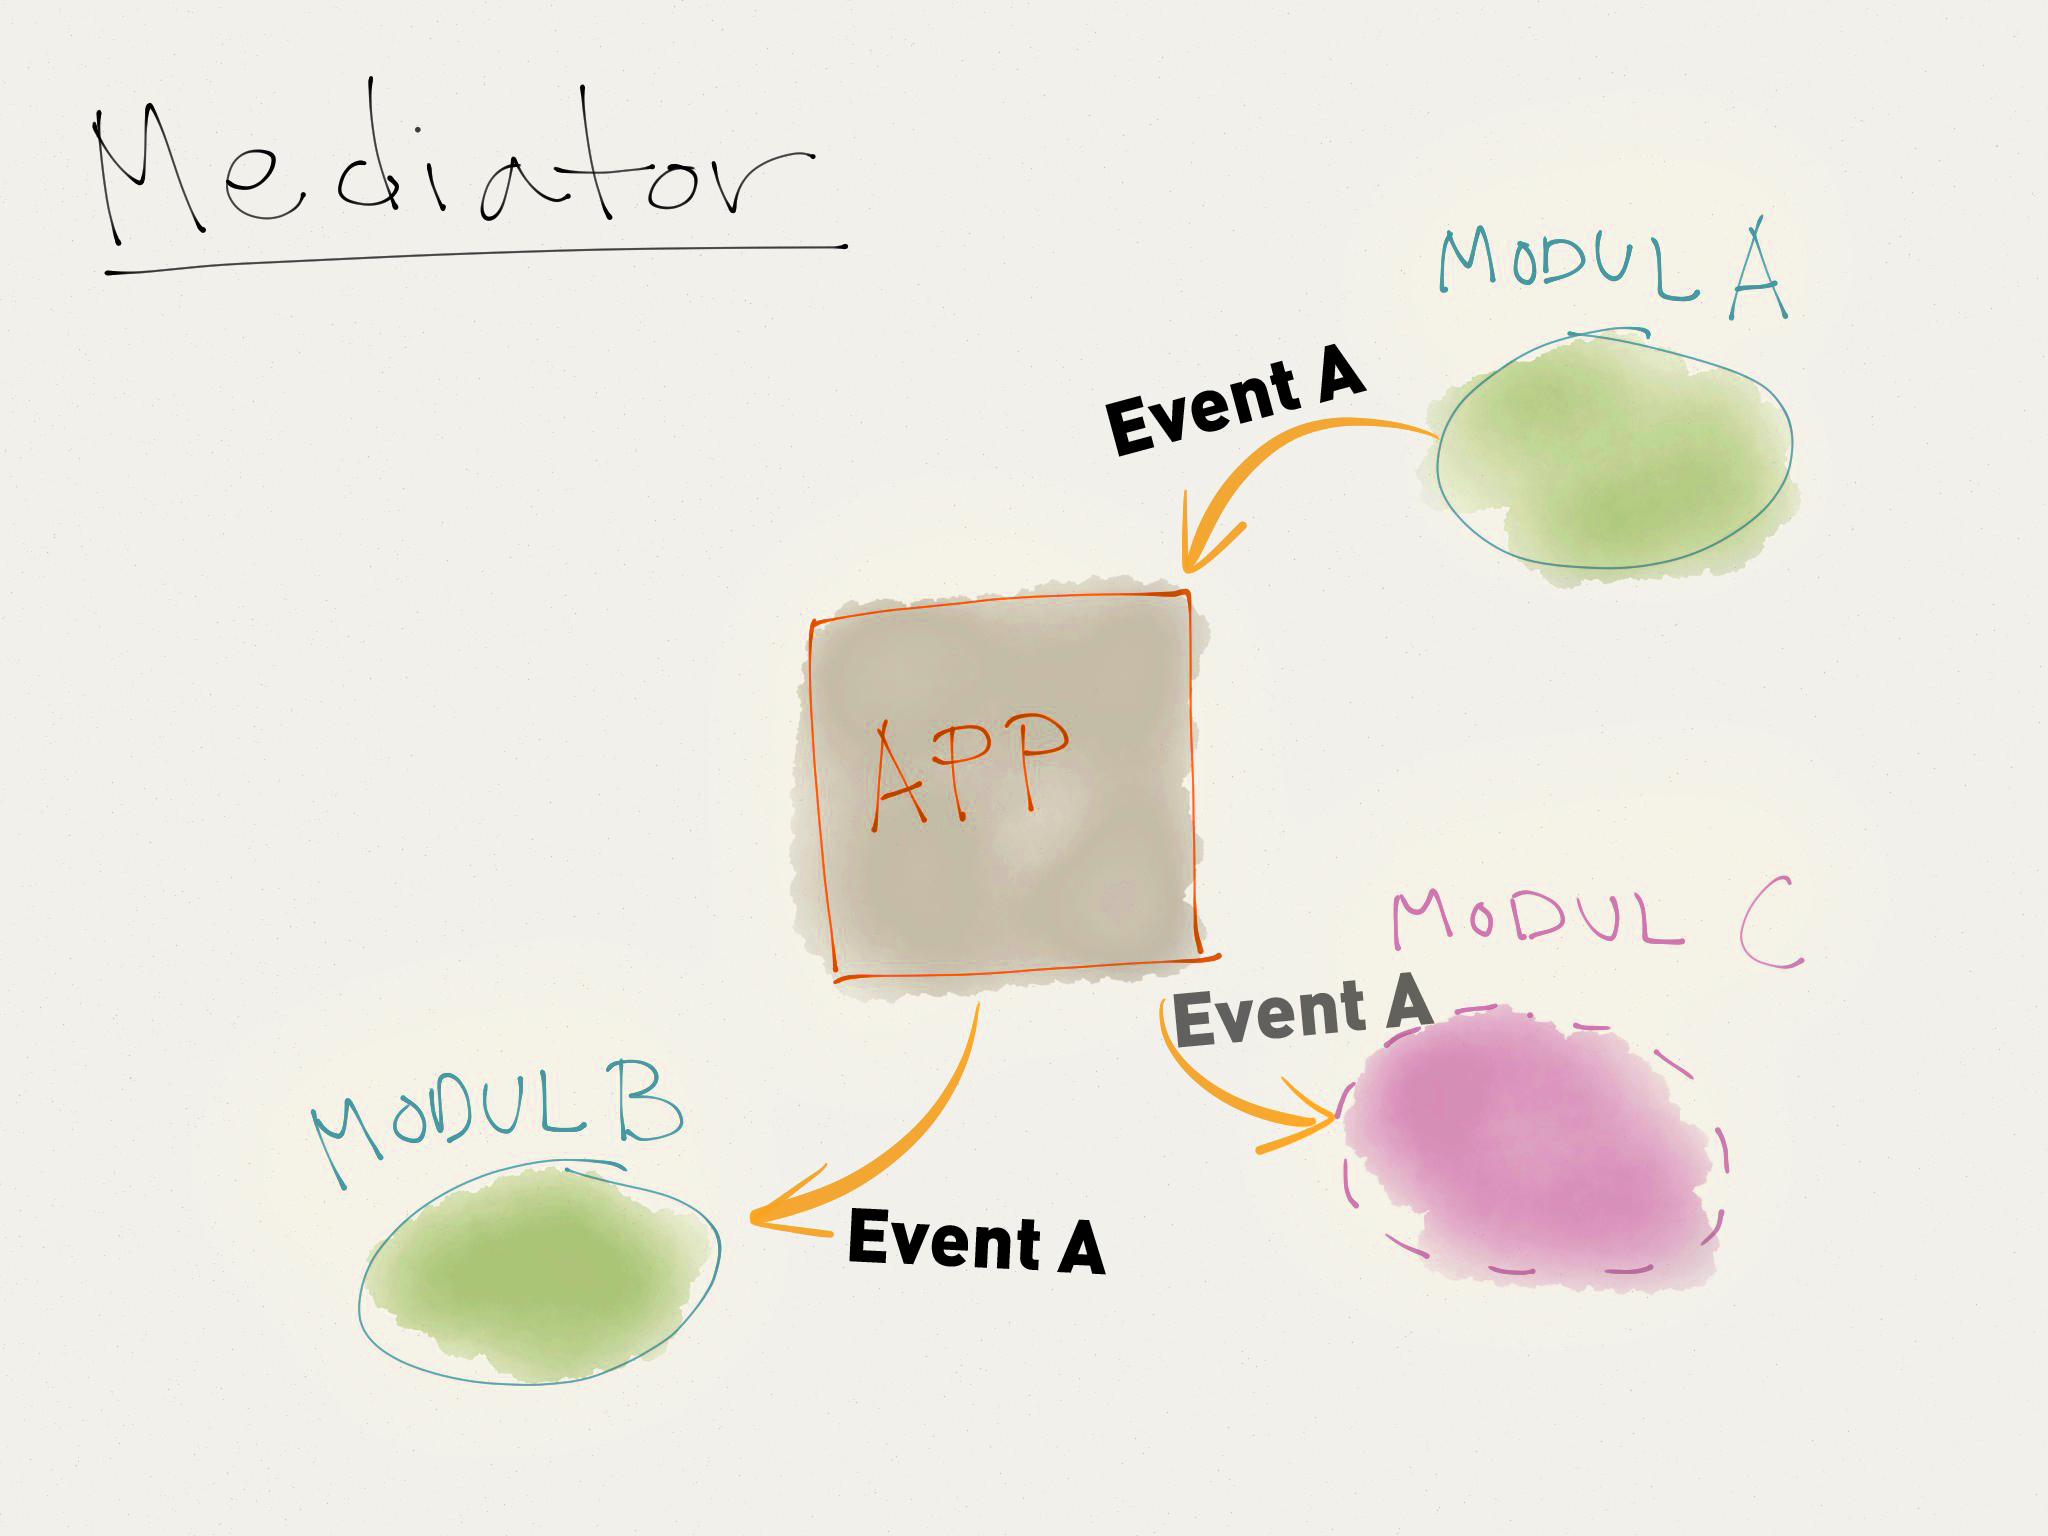 Mediator
MODUL A
Event A
APP
MODUL C
Event A
MODUL B
Event A